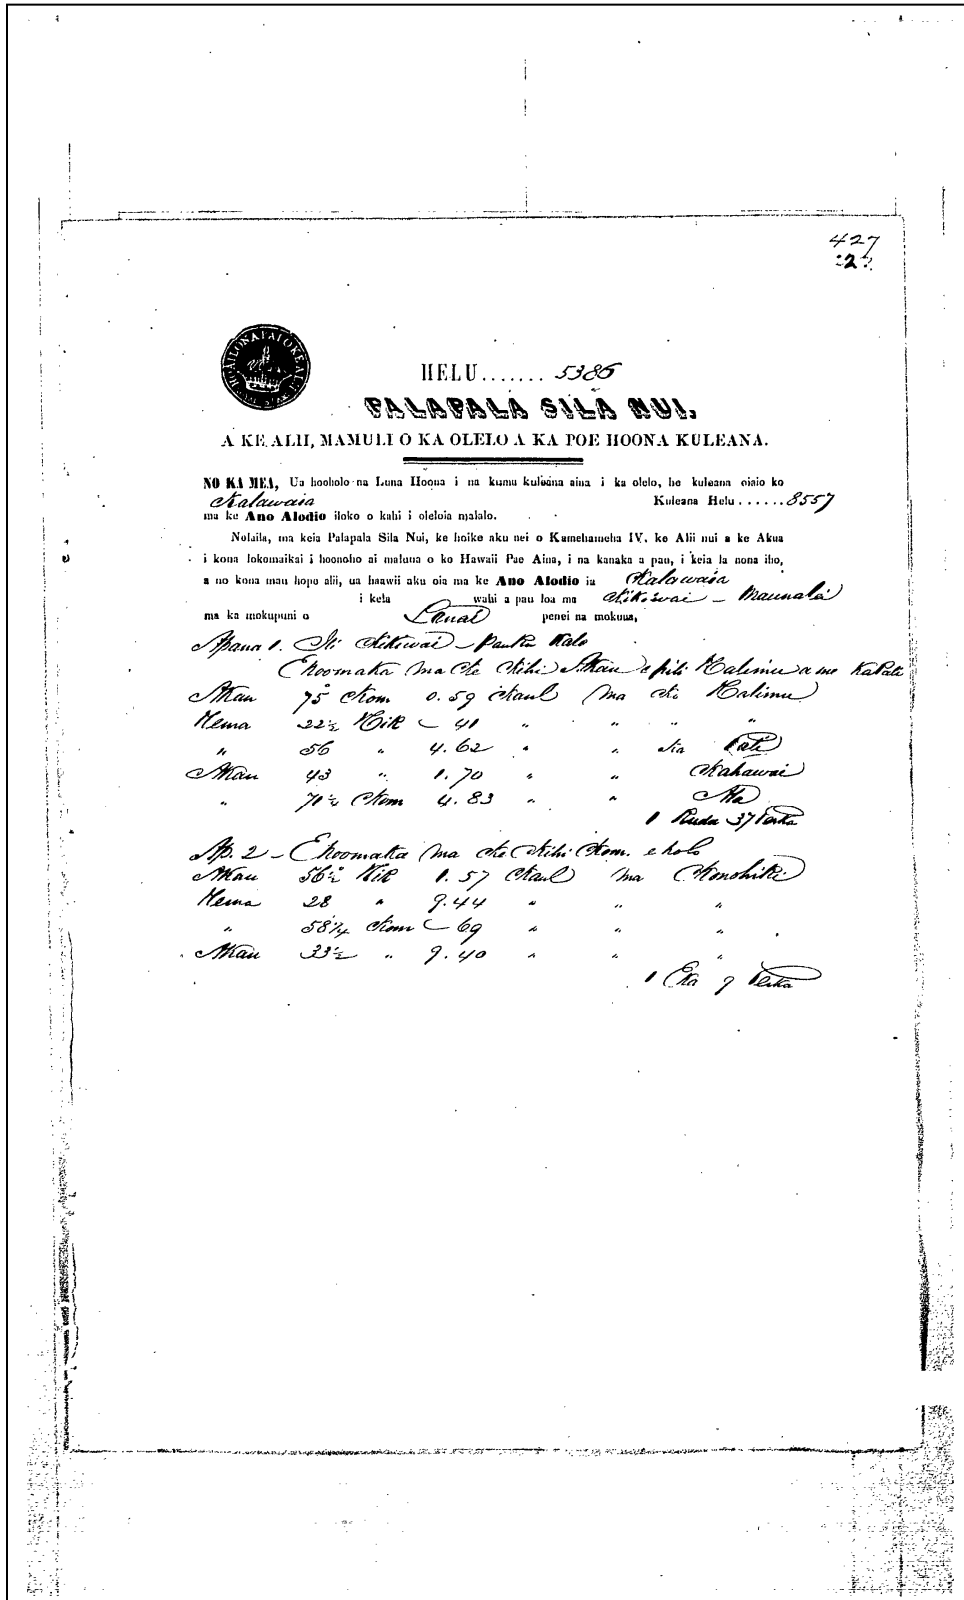 427
HELU....... 5386
PALAPALA SILA NUI,
A KE ALII, MAMULI O KA OLELO A KA POE HOONA KULEANA.
NO KA MEA, Ua hooholo na Luna Hoona i na kumu kuleana aina i ka olelo, he kuleana oiaio ko
Kalawaia Kuleana Helu......8557
ma ke Ano Alodio iloko o kahi i oleloia malalo.
Nolaila, ma keia Palapala Sila Nui, ke hoike aku nei o Kamehameha IV. ke Alii nui a ke Akua
i kona lokomaikai i hoonoho ai maluna o ko Hawaii Pae Aina, i na kanaka a pau, i keia la nona iho,
a no kona mau hope alii, ua haawii aku oia ma ke Ano Alodio ia Kalawaia
i kela wahi a pau loa ma Kikiwai – Maunalei
ma ka mokupuni o Lanai penei na mokuna,
Apana 1. Ili Kikiwai – Pauku Kalo
E hoomaka ma ke Kihi Akau e pili Kalimu a me KaPali
Akau 75° Kom 0.59 Kaul ma ko Kalimu
Hema 22½ Hik – 41 " " " "
" 56 " 4.62 " " ka Pali
Akau 43 " 1.70 " " Kahawai
" 71½ Kom 4.83 " " Ala
1 Ruda 37 Perka
Ap. 2 – E hoomaka ma ke Kihi Kom. e holo
Akau 56½° Hik 1.57 Kaul ma Konohiki
Hema 28 " 9.44 " " "
" 58¼ Kom – 69 " " "
Akau 33½ " 9.40 " " "
1 Eka 9 Perka